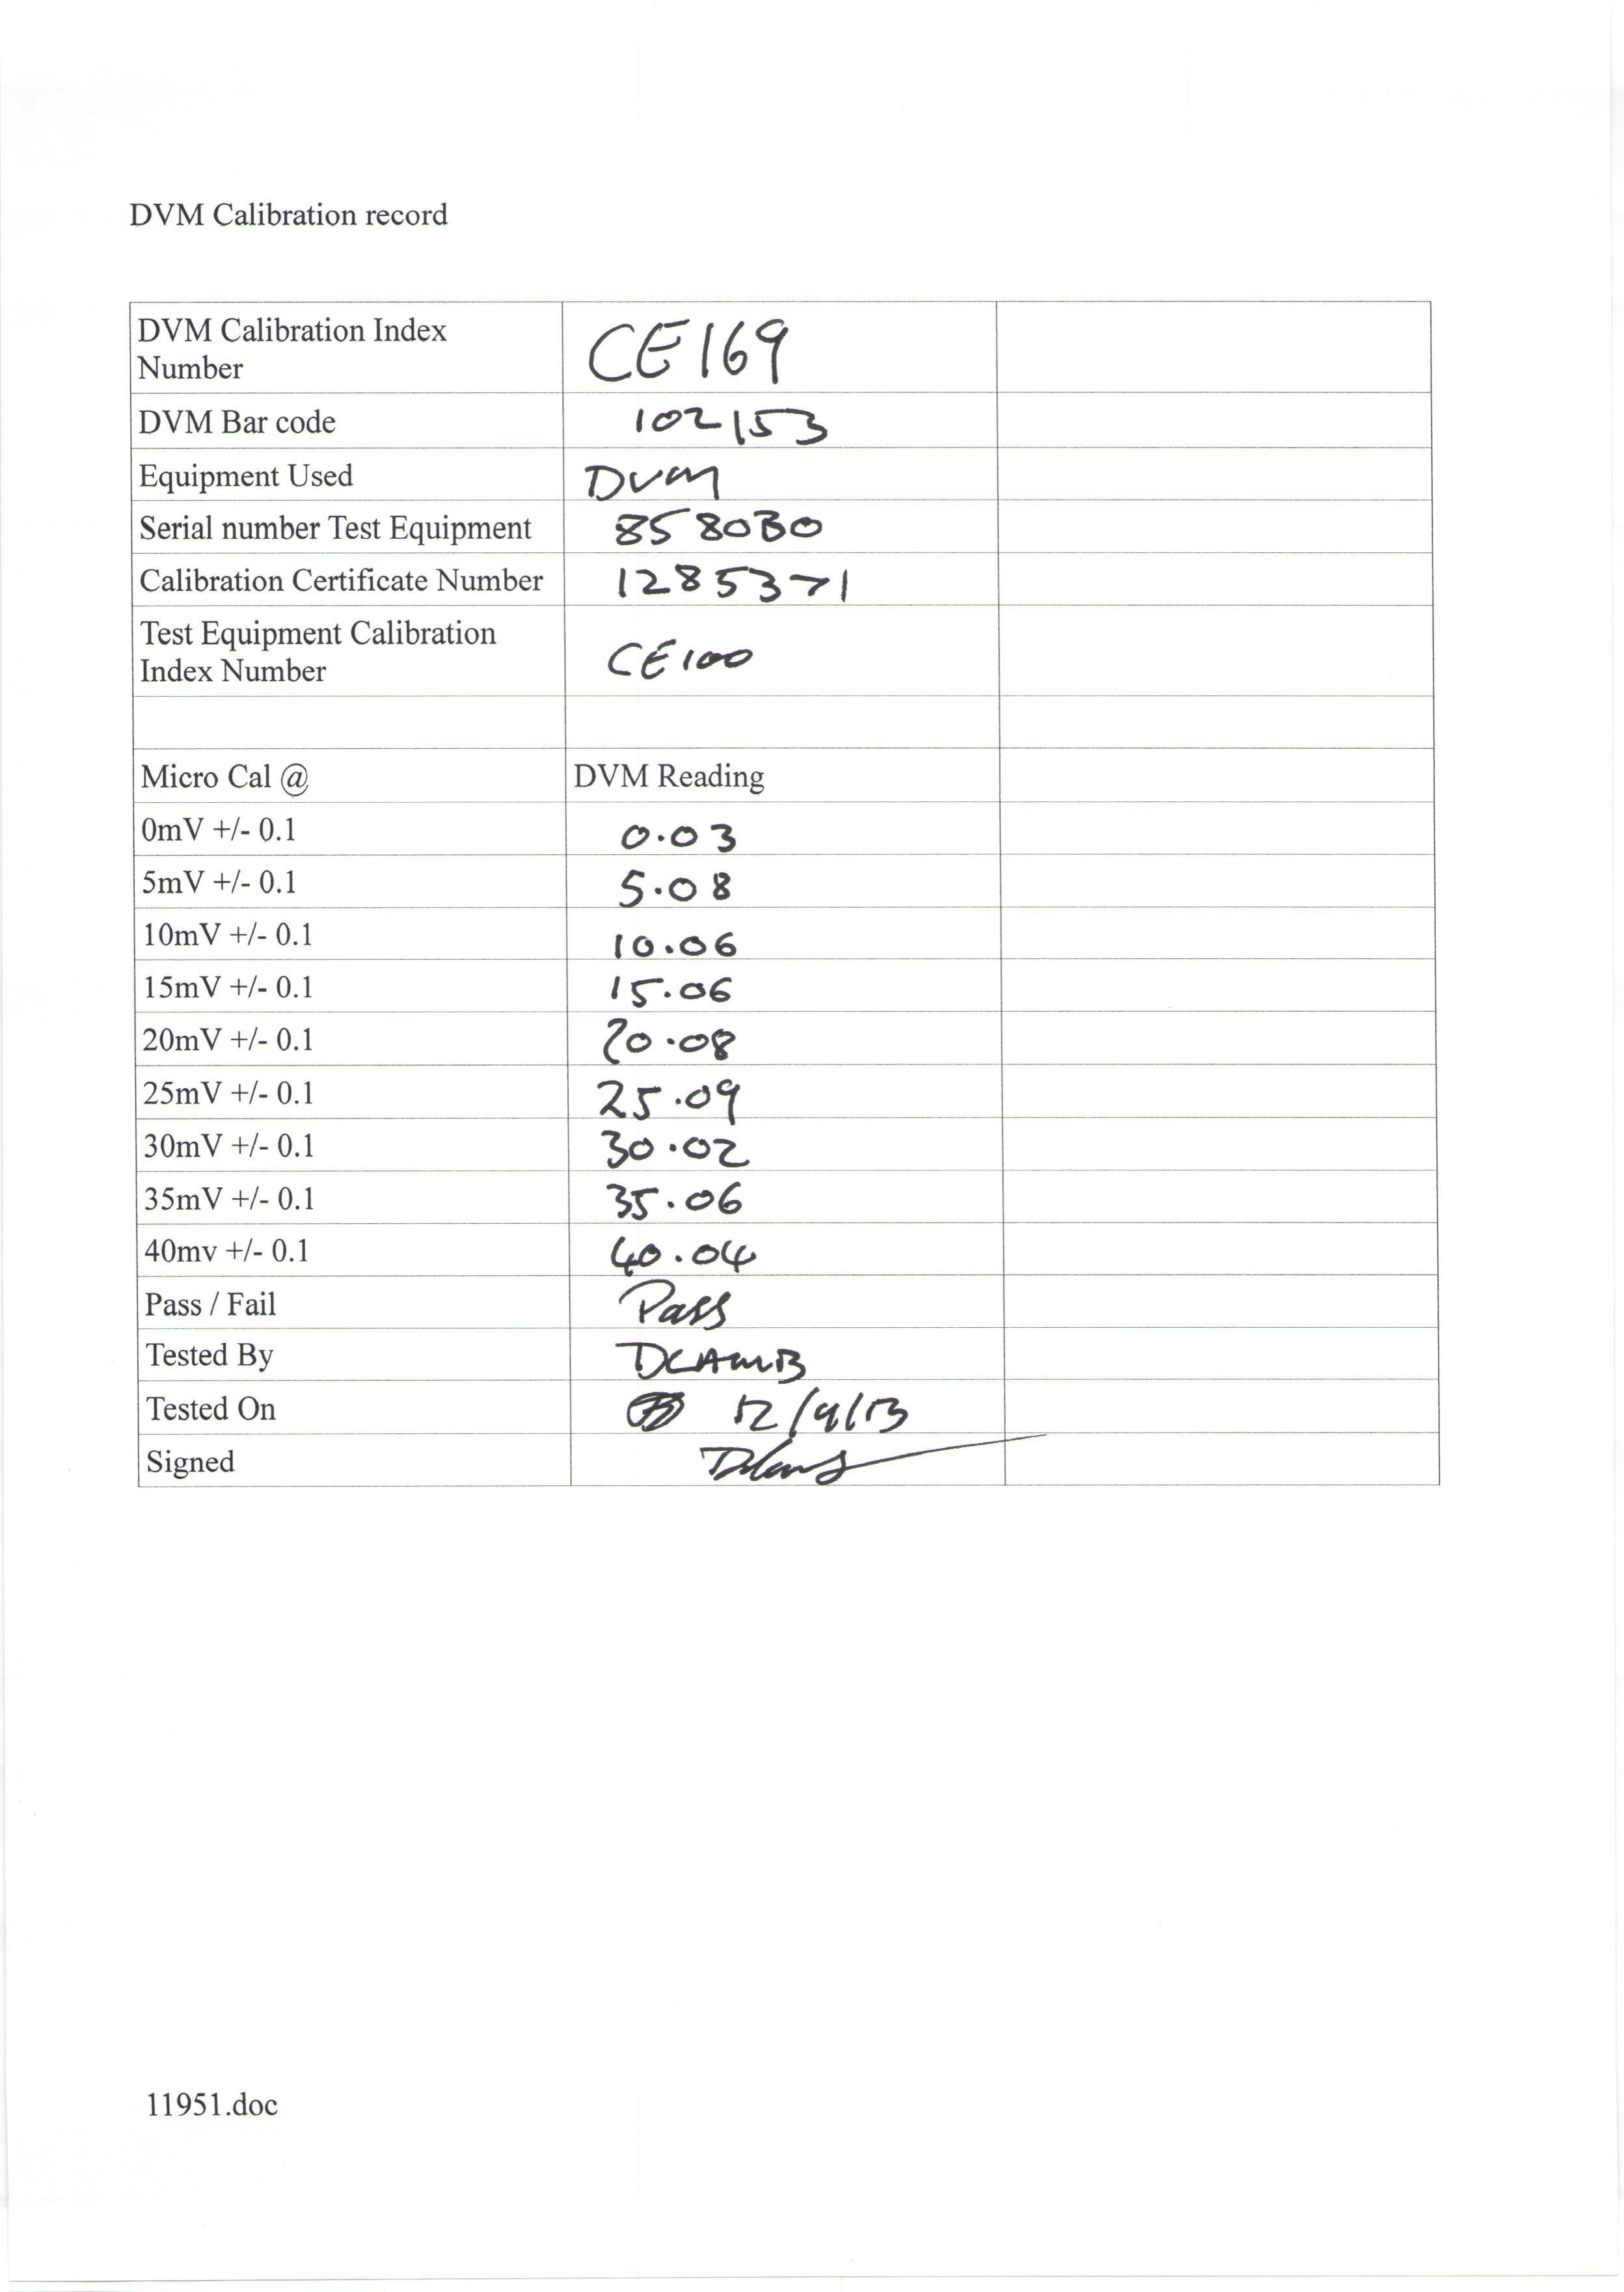 DVM Calibration record
DVM Calibration Index
Number
CE169
DVM Bar code 102153
Equipment Used DVM
Serial number Test Equipment 858030
Calibration Certificate Number 1285371
Test Equipment Calibration
Index Number
CE100
Micro Cal @ DVM Reading
0mV +/- 0.1 0.03
5mV +/- 0.1 5.08
10mV +/- 0.1 10.06
15mV +/- 0.1 15.06
20mV +/- 0.1 20.08
25mV +/- 0.1 25.09
30mV +/- 0.1 30.02
35mV +/- 0.1 35.06
40mv +/- 0.1 40.04
Pass / Fail Pass
Tested By
Tested On 12/9/13
Signed
11951.doc